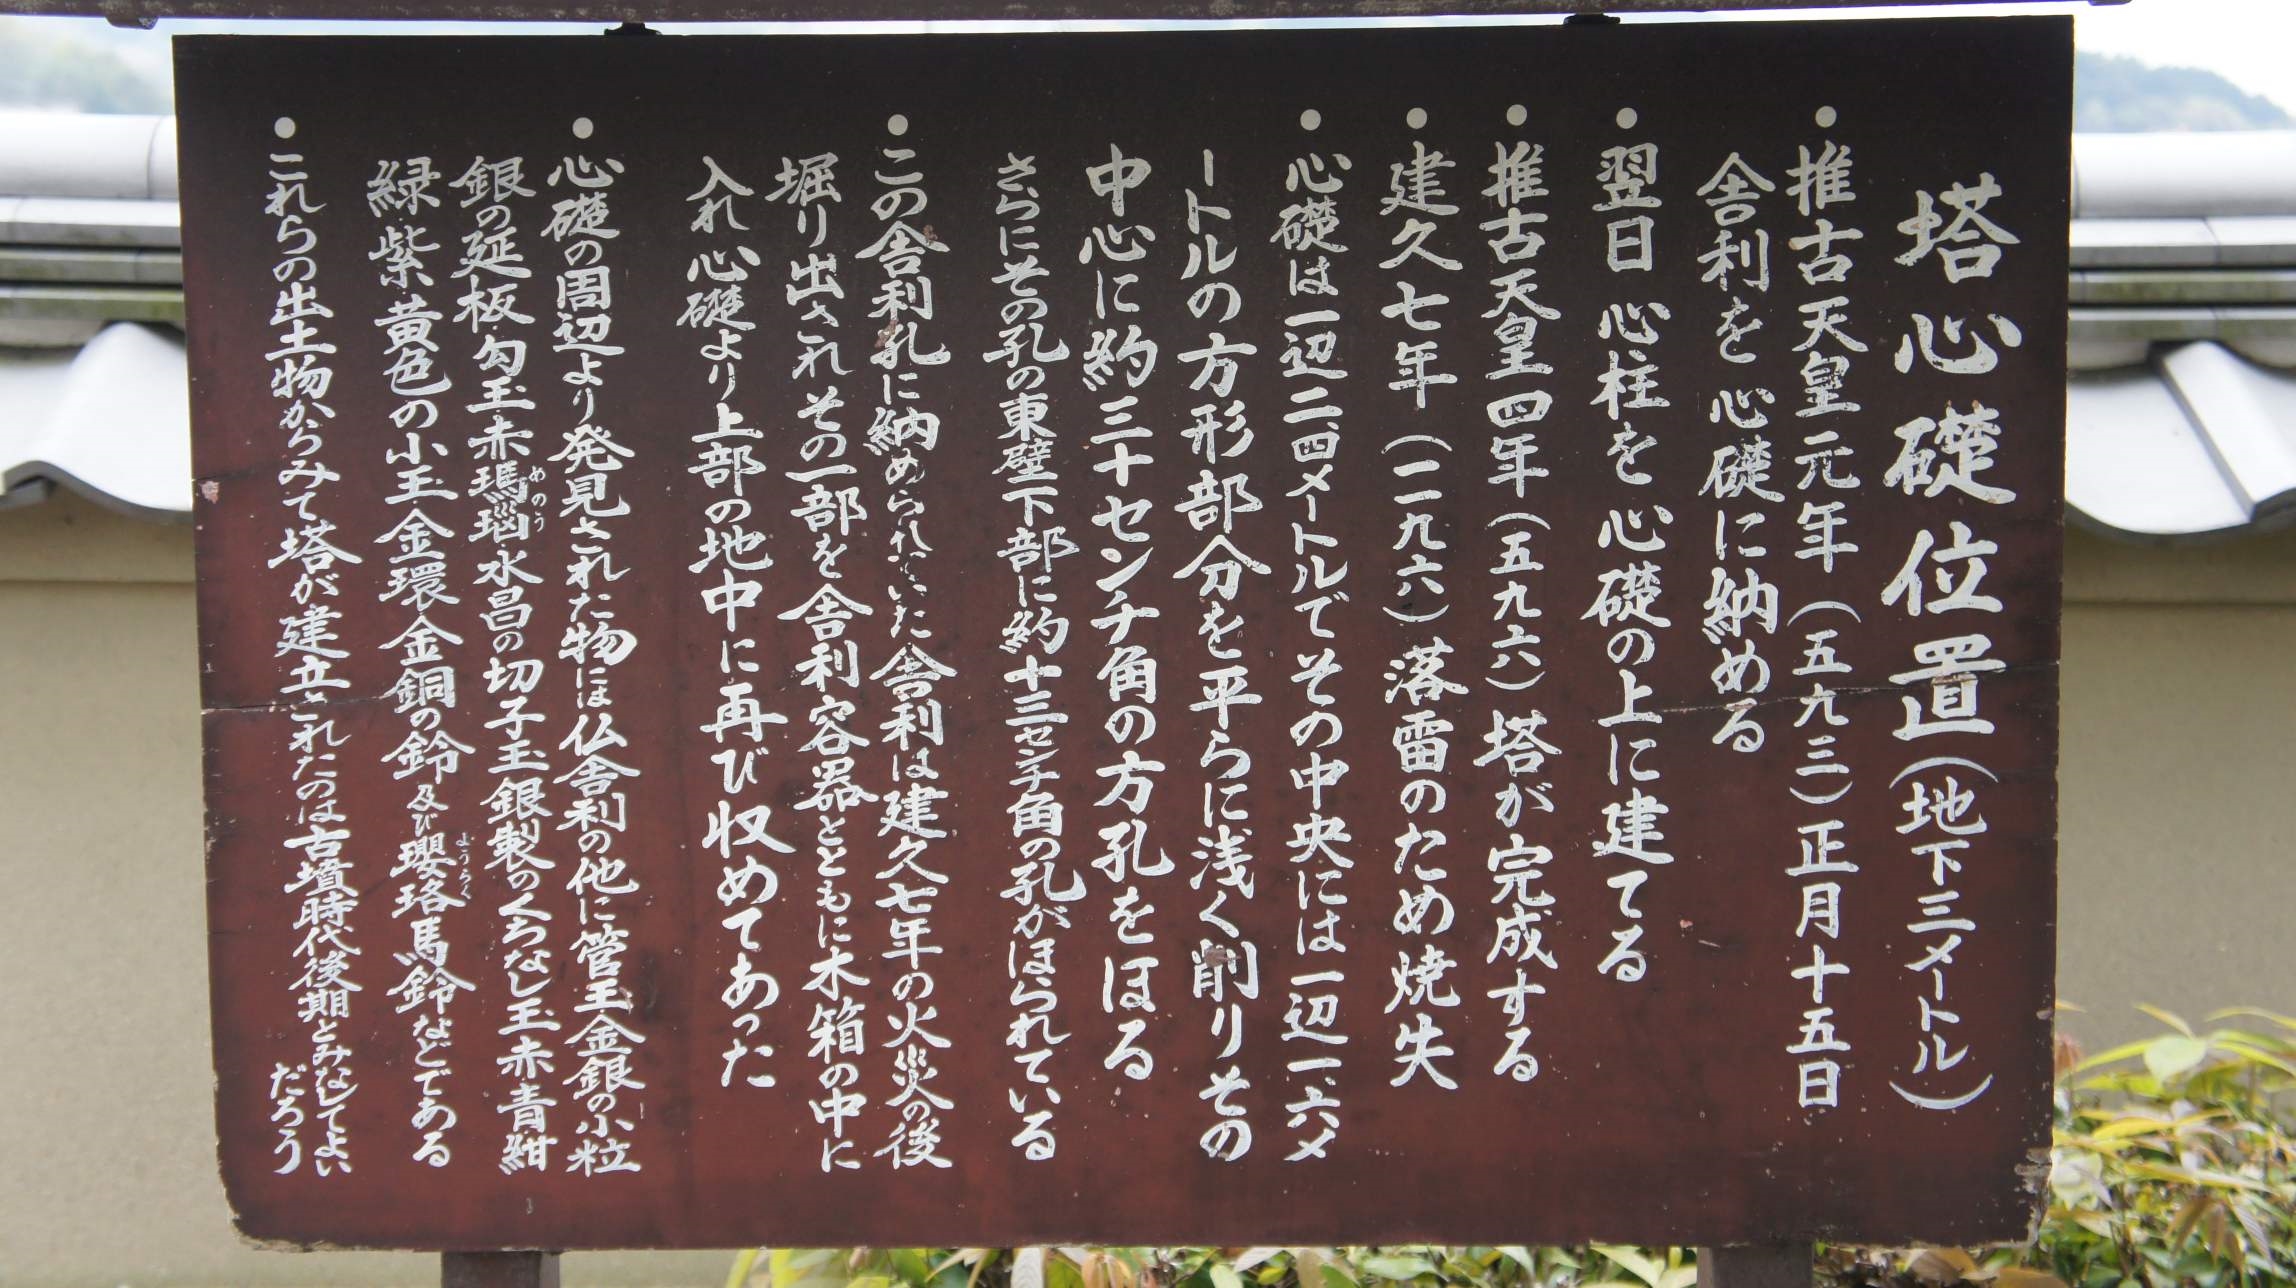 塔心礎位置(地下三メートル)
●推古天皇元年(五九三)正月十五日
舎利を心礎に納める
●翌日 心柱を心礎の上に建てる
●推古天皇四年(五九六)塔が完成する
●建久七年(一一九六)落雷のため焼失
●心礎は一辺二・四メートルでその中央には一辺一・六メ
ートルの方形部分を平らに浅く削りその
中心に約三十センチ角の方孔をほる
さらにその孔の東壁下部に約十三センチ角の孔がほられている
●この舎利孔に納められていた舎利は建久七年の火災の後
堀り出されその一部を舎利容器とともに木箱の中に
入れ心礎より上部の地中に再び収めてあった
●心礎の周辺より発見された物には仏舎利の他に管玉金銀の小粒
銀の延板・勾玉・赤瑪瑙・水昌の切子玉銀製のくちなし玉赤青紺
めのう
緑紫黄色の小玉金環金銅の鈴及び瓔珞馬鈴などである
ようらく
●これらの出土物からみて塔が建立されたのは古墳時代後期とみなしてよい
だろう